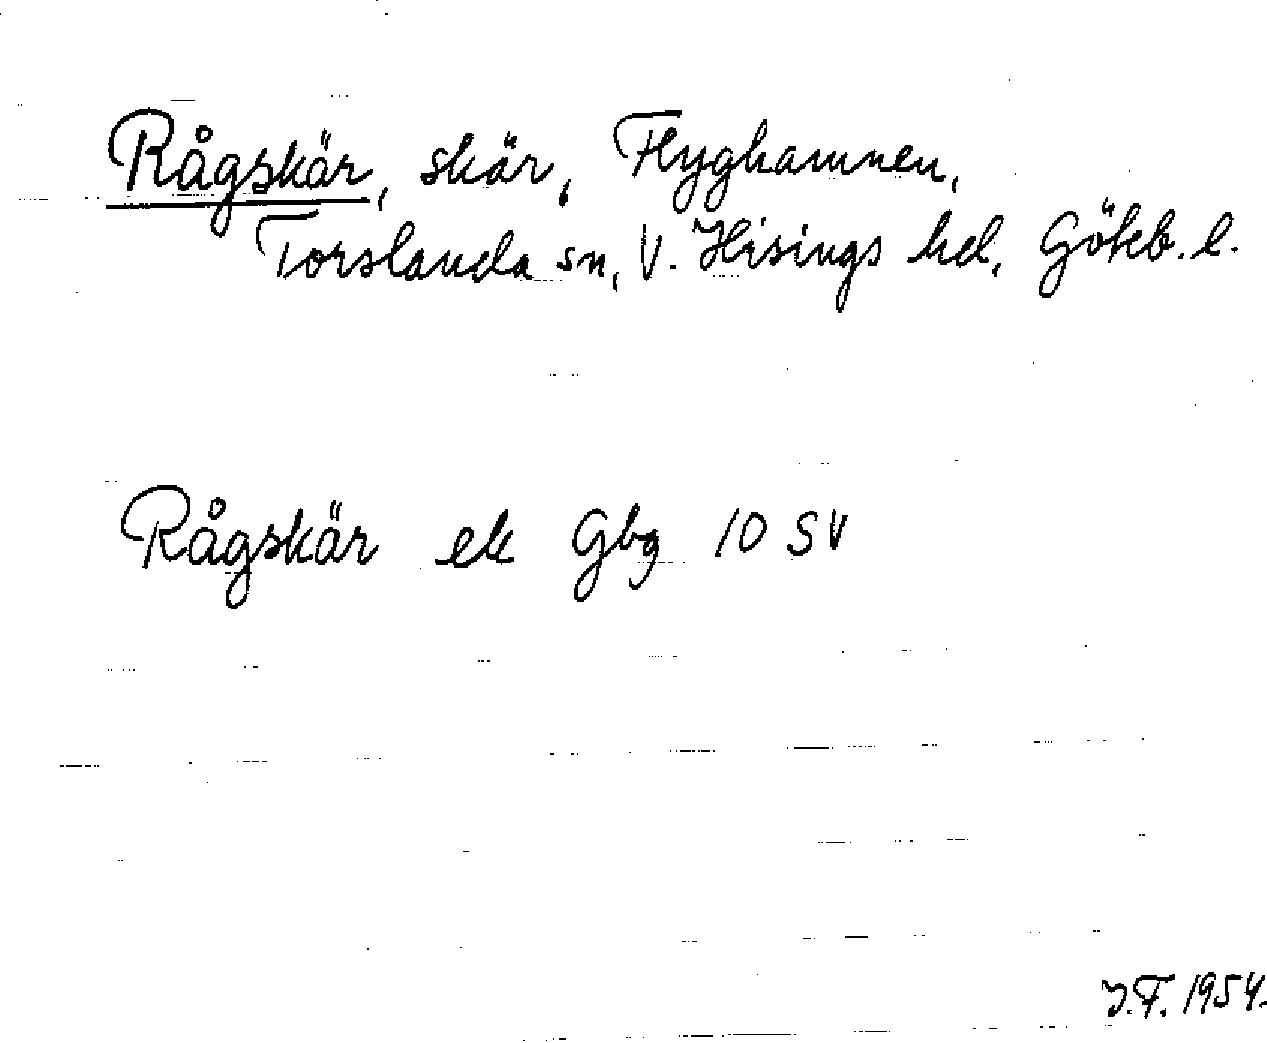 Rågskär, skär, Flyghamnen,
Torslanda sn, V. Hisings hd, Göteb. l.
Rågskär ek Gbg 10 SV
J.F. 1954.